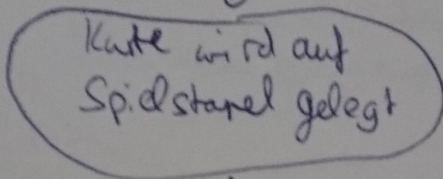 Karte wird auf
Spielstapel gelegt